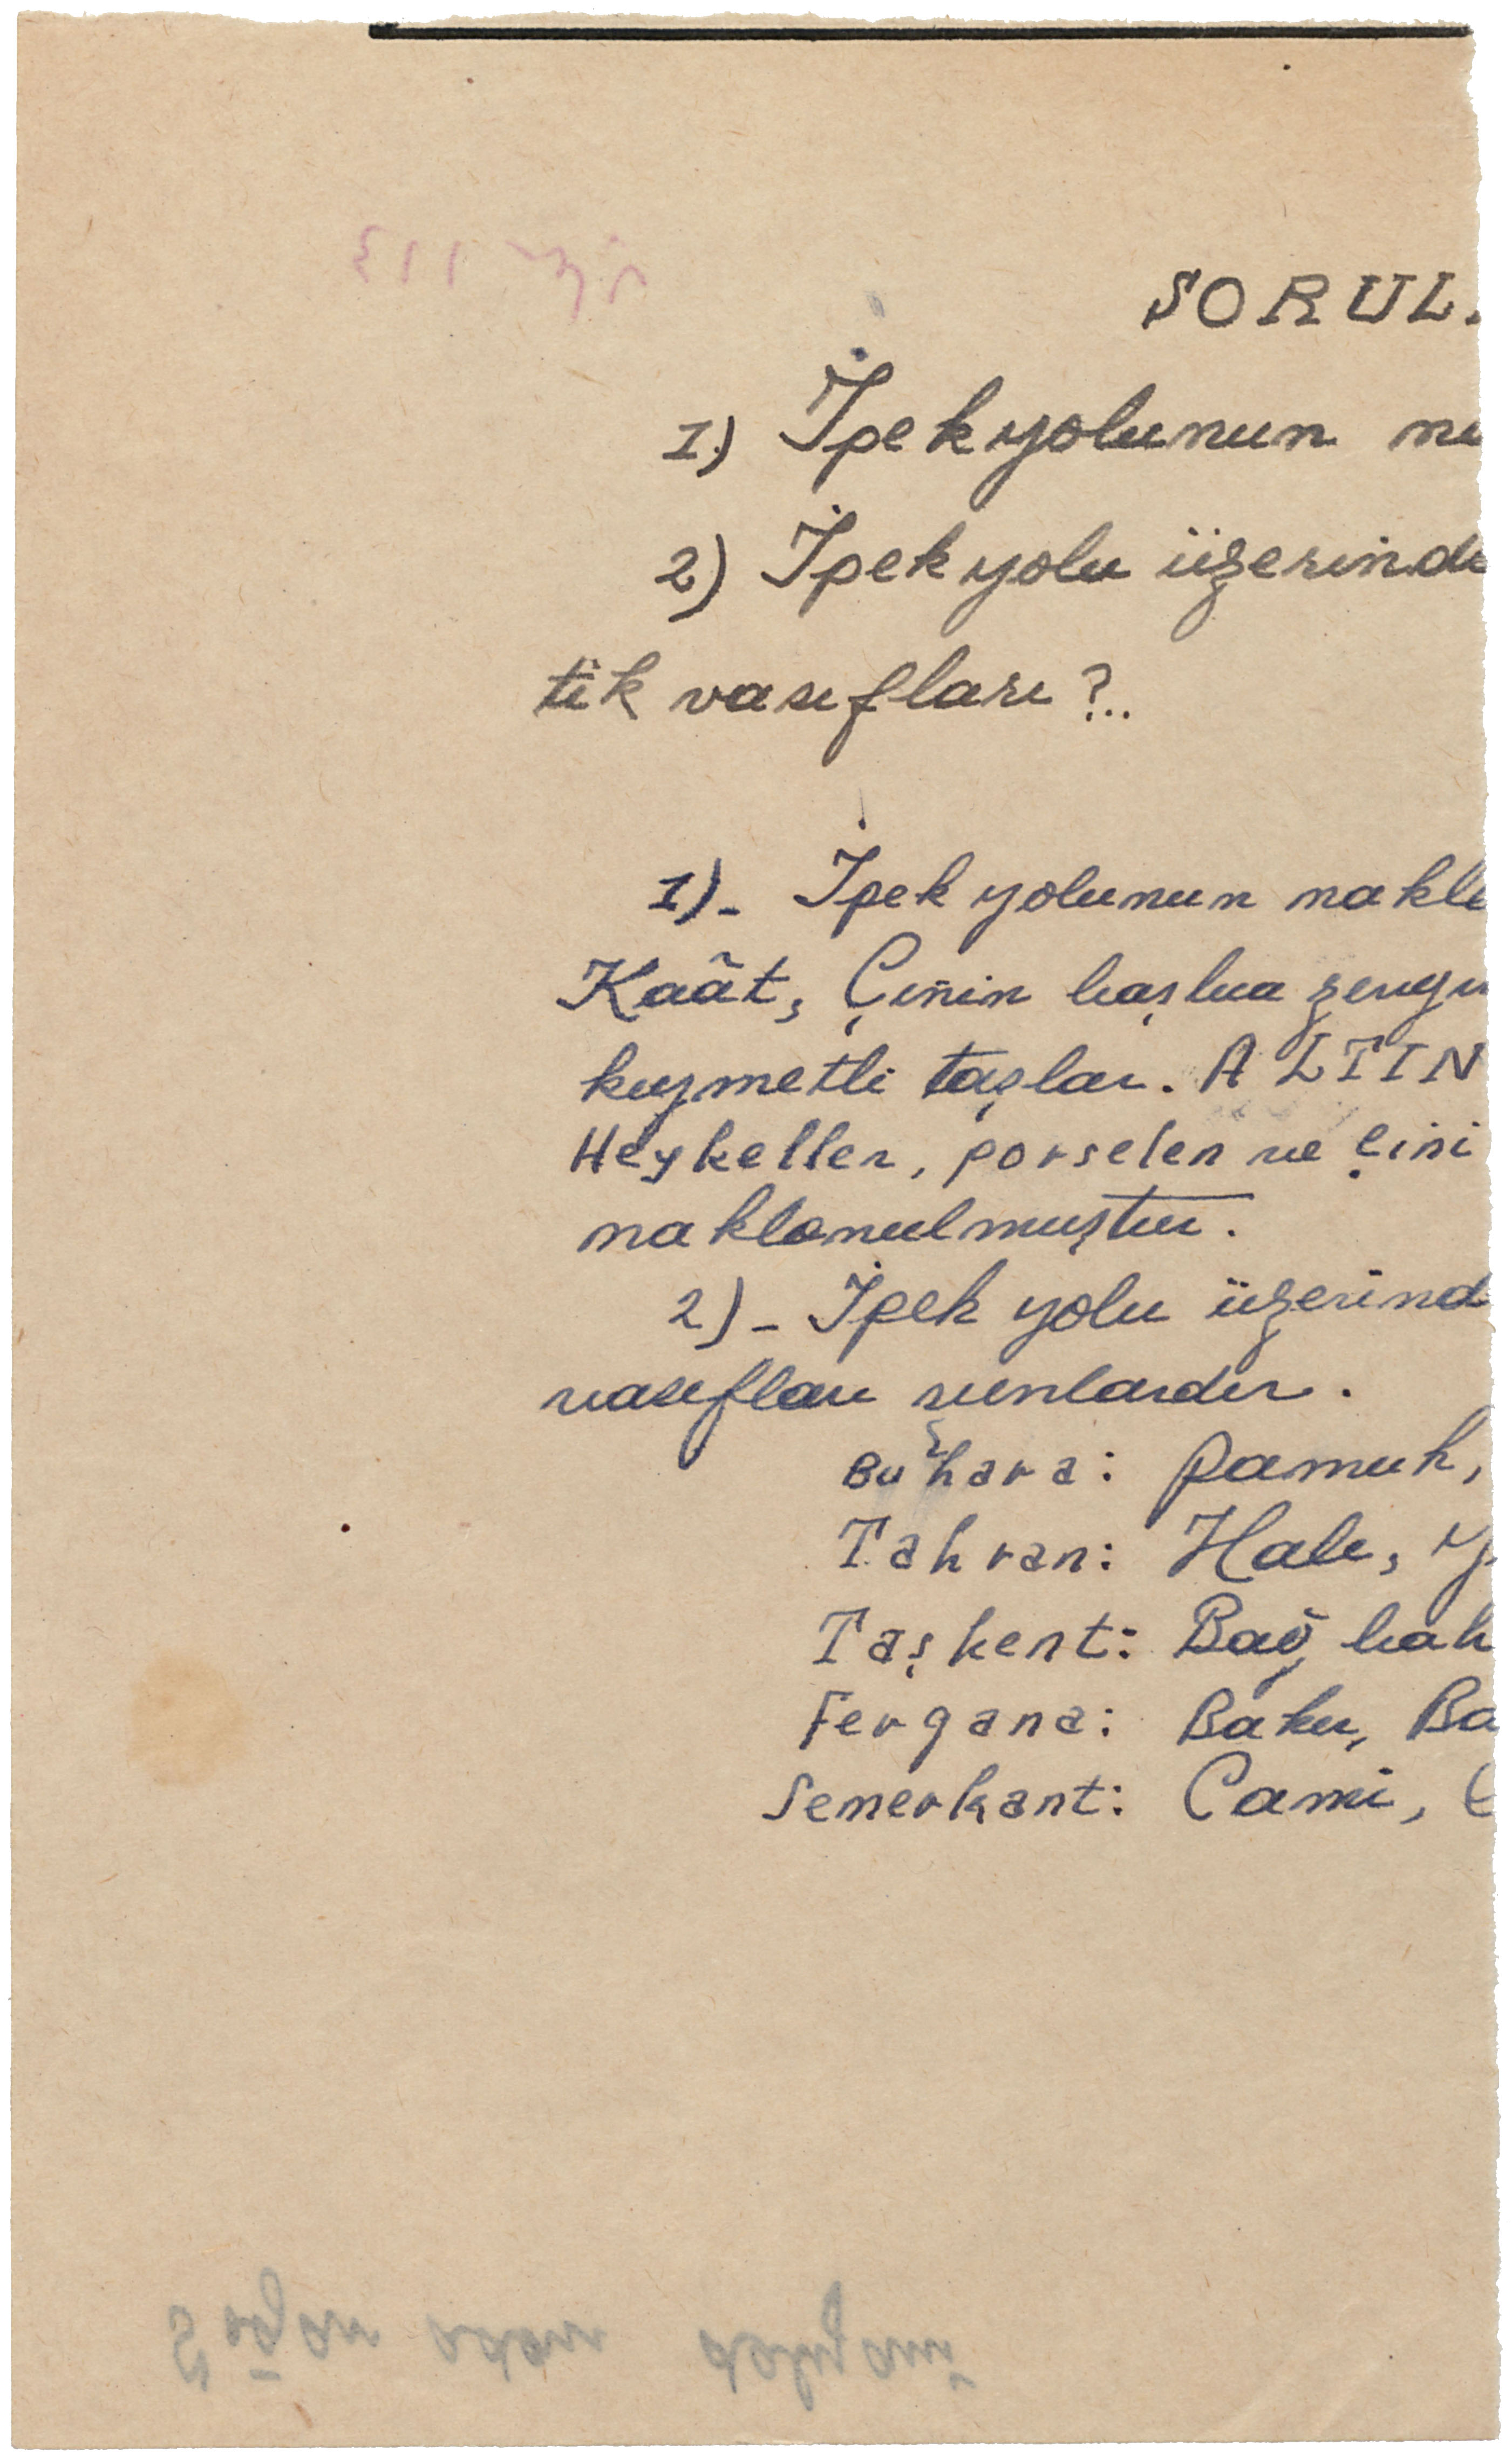 SORUL
1) İpek yolunun
2) İpek yolu üzerinde
tik vasıfları ?..
1)- İpek yolunun nakle
Kaât, Çinin başlıca zengi
kıymetli taşlar. ALTIN
Heykeller, porselen ve çini
naklonulmuştur.
2)- İpek yolu üzerind
vasıfları şunlardır.
Buhara: pamuk,
Tahran: Halı, y
Taşkent: Bağ bah
Fergana: Bakır, Ba
Semerkant: Cami,